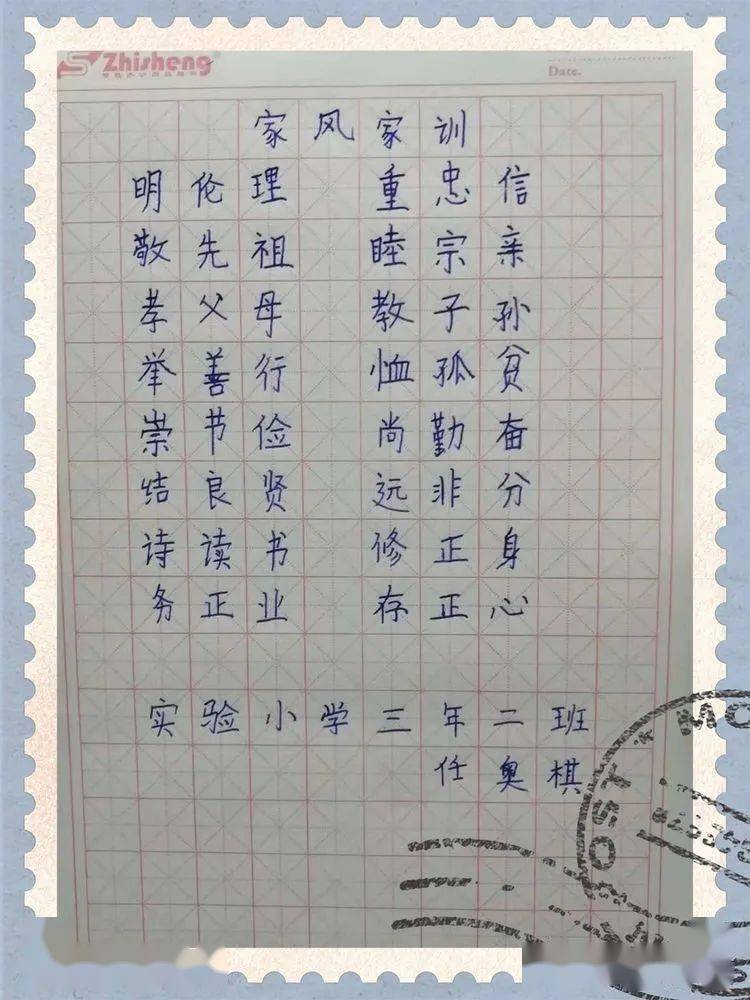 Zhisheng
Date.
家风家训
明伦理 重忠信
敬先祖 睦宗亲
孝父母 教子孙
举善行 恤孤贫
崇节俭 尚勤奋
结良贤 远非分
诗读书 修正身
务正业 存正心
实验小学三年二班
任奥棋